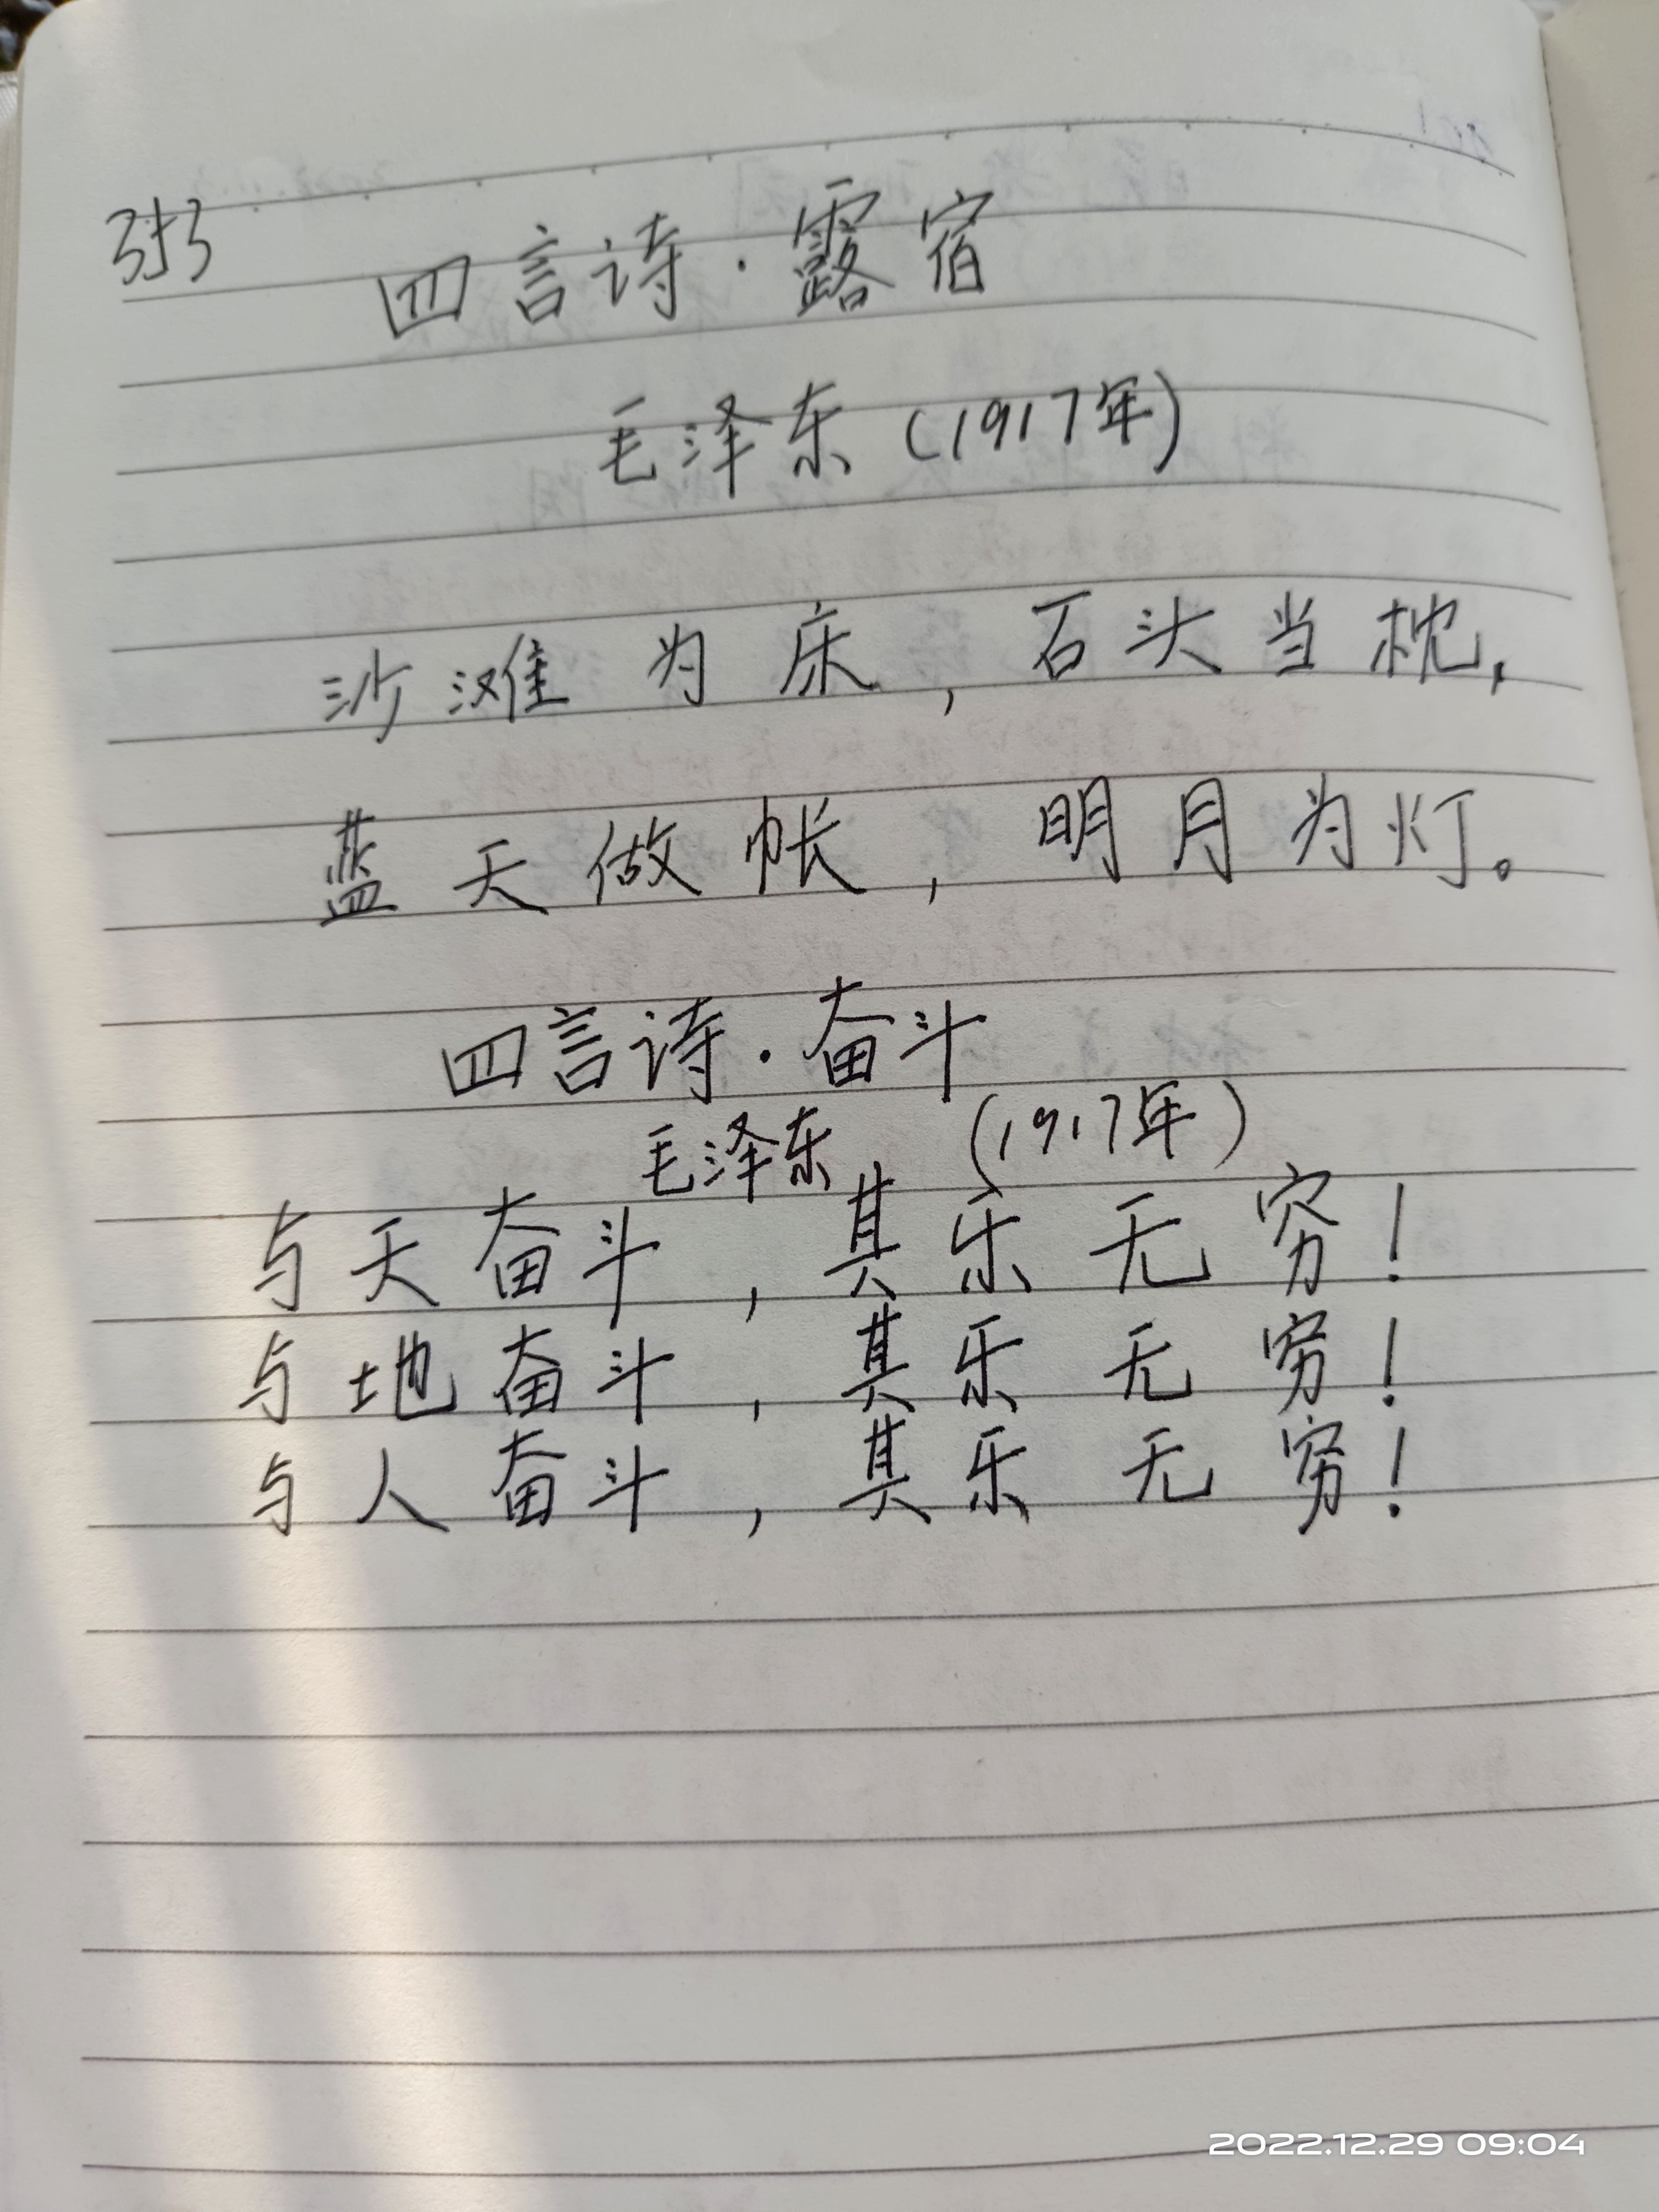 四言诗·露宿
毛泽东(1917年)
沙滩为床,石头当枕,
蓝天做帐,明月为灯。
四言诗·奋斗
毛泽东 (1917年)
与天奋斗,其乐无穷!
与地奋斗,其乐无穷!
与人奋斗,其乐无穷!
2022.12.29 09:04